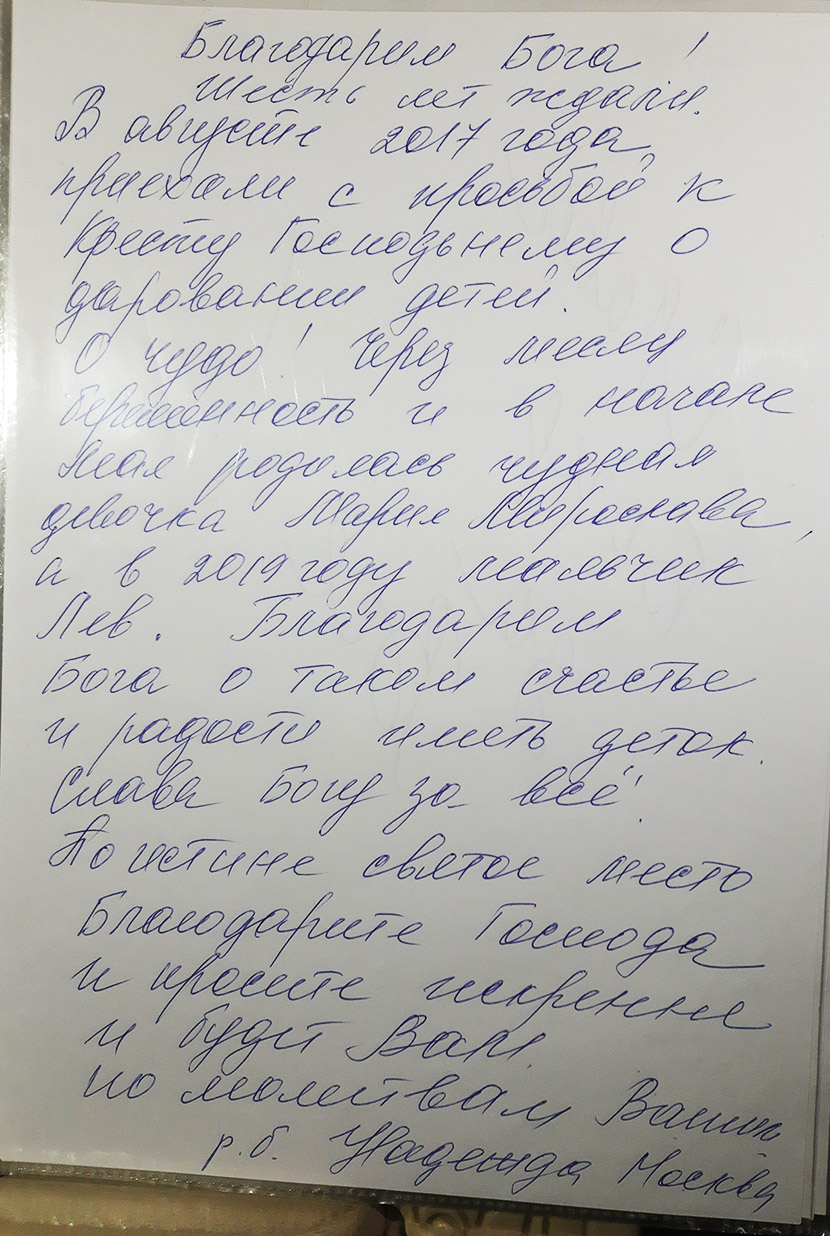 Благодарим Бога!
Шесть лет ждали.
В августе 2017 года,
приехали с просьбой к
Кресту Господьнему о
даровании детей.
О чудо! Через месяц
беременность и в начале
Мая родилась чудная
девочка Мария Мирослава,
а в 2019 году мальчик
Лев. Благодарим
Бога о таком счастье
и радости иметь деток.
Слава Богу за всё!
Поистине святое место
Благодарите Господа
и просите искренне
и будет Вам
по молитвам Вашим
р.б. Надежда Москва